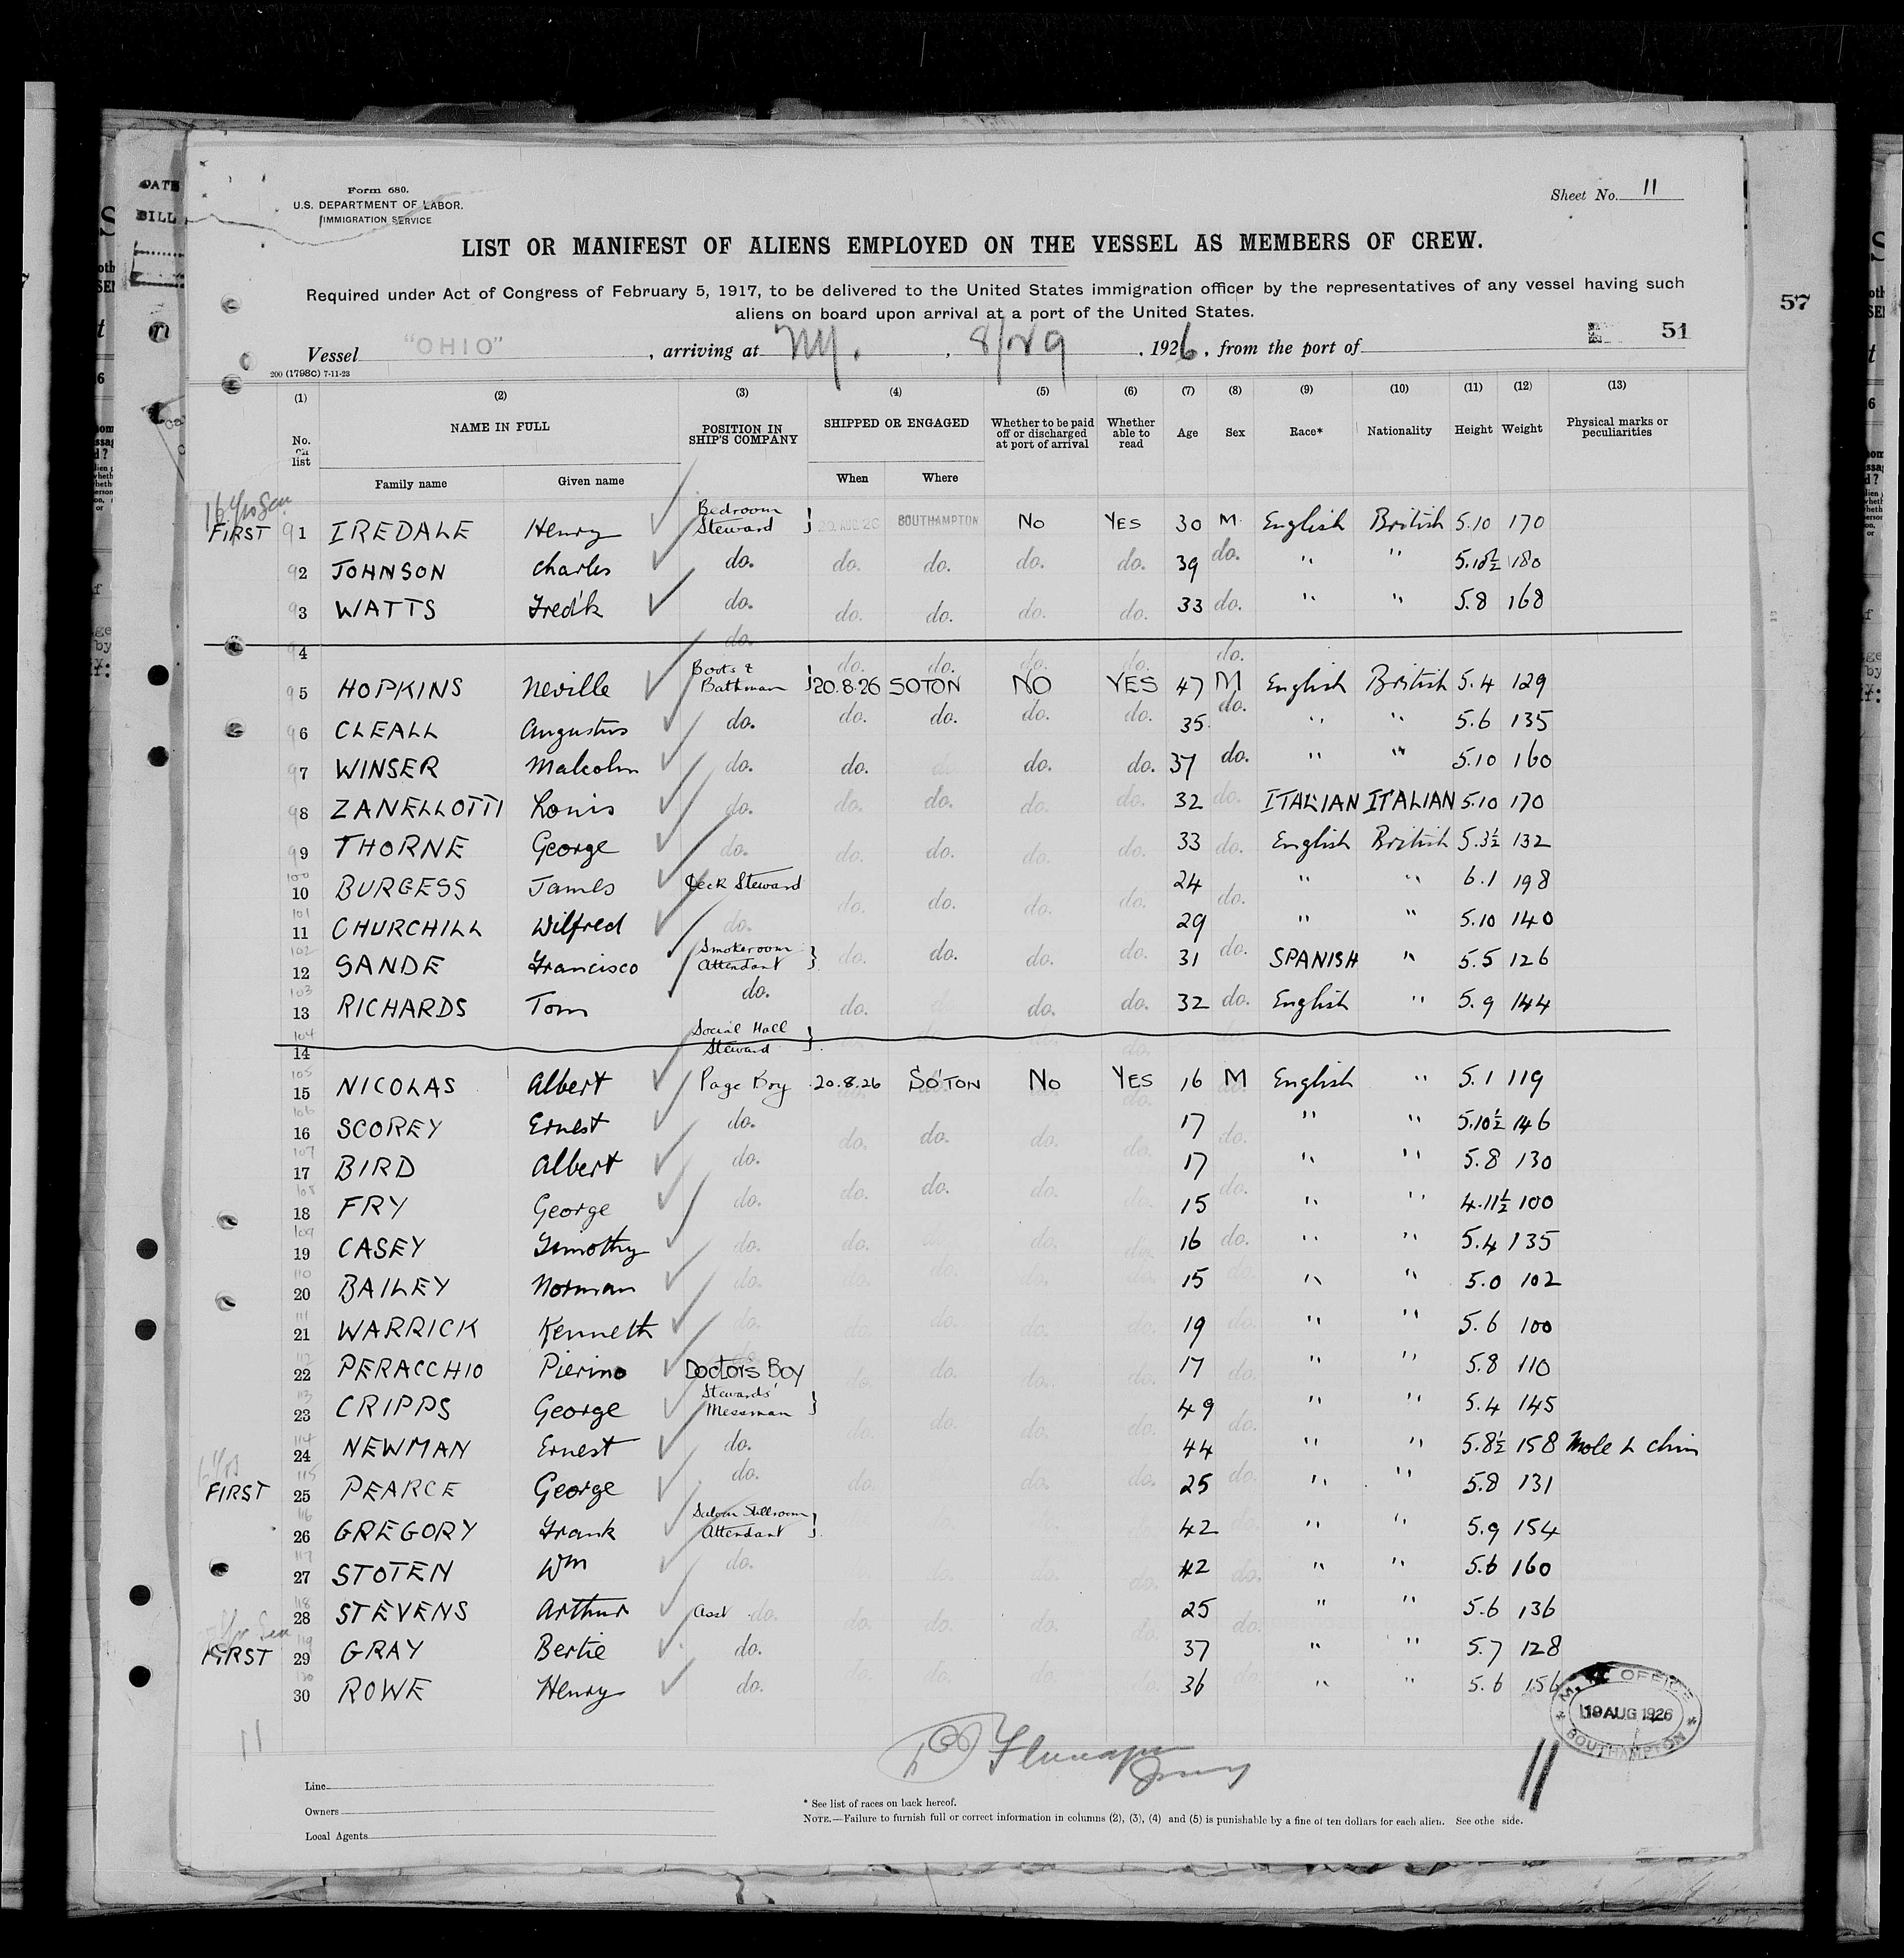 Form 680.
U.S. DEPARTMENT OF LABOR.
IMMIGRATION SERVICE
Sheet No. 11
LIST OR MANIFEST OF ALIENS EMPLOYED ON THE VESSEL AS MEMBERS OF CREW.
Required under Act of Congress of February 5, 1917, to be delivered to the United States immigration officer by the representatives of any vessel having such
aliens on board upon arrival at a port of the United States.
57
51
Vessel "OHIO", arriving at N.Y., 8/29, 1926, from the port of
200 (1798C) 7-11-23
(1) (2) (3) (4) (5) (6) (7) (8) (9) (10) (11) (12) (13)
No. on list NAME IN FULL POSITION IN SHIP'S COMPANY SHIPPED OR ENGAGED Whether to be paid off or discharged at port of arrival Whether able to read Age Sex Race* Nationality Height Weight Physical marks or peculiarities
Family name Given name When Where
FIRST 91 1 IREDALE Henry Bedroom Steward } 20 AUG 26 SOUTHAMPTON No YES 30 M. English British 5.10 170
92 2 JOHNSON Charles do. do. do. do. do. 39 do. " " 5.10½ 180
93 3 WATTS Fred'k do. do. do. do. do. 33 do. " " 5.8 168
94 4 do. do. do. do. do. do.
95 5 HOPKINS Neville Boots & Bathman } 20.8.26 SOTON NO YES 47 M English British 5.4 129
96 6 CLEALL Augustus do. do. do. do. do. 35 do. " " 5.6 135
97 7 WINSER Malcolm do. do. do. do. do. 37 do. " " 5.10 160
98 8 ZANELLOTTI Louis do. do. do. do. do. 32 do. ITALIAN ITALIAN 5.10 170
99 9 THORNE George do. do. do. do. do. 33 do. English British 5.3½ 132
100 10 BURGESS James Deck Steward do. do. do. do. 24 do. " " 6.1 198
101 11 CHURCHILL Wilfred do. 29 " " 5.10 140
102 12 SANDE Francisco Smokeroom Attendant } do. do. do. do. 31 do. SPANISH " 5.5 126
103 13 RICHARDS Tom do. do. do. do. do. 32 do. English " 5.9 144
104 14 Social Hall Steward } do.
105 15 NICOLAS Albert Page Boy 20.8.26 SO'TON No YES 16 M English " 5.1 119
106 16 SCOREY Ernest do. do. do. do. do. 17 do. " " 5.10½ 146
107 17 BIRD Albert do. 17 " " 5.8 130
108 18 FRY George do. do. do. do. do. 15 do. " " 4.11½ 100
109 19 CASEY Timothy do. do. do. do. do. 16 do. " " 5.4 135
110 20 BAILEY Norman do. do. do. do. 15 do. " " 5.0 102
111 21 WARRICK Kenneth do. do. do. do. do. 19 do. " " 5.6 100
112 22 PERACCHIO Pierino Doctors Boy do. do. do. do. 17 do. " " 5.8 110
113 23 CRIPPS George Stewards' Messman } do. do. do. do. 49 do. " " 5.4 145
114 24 NEWMAN Ernest do. 44 " " 5.8½ 158 Mole L chin
FIRST 115 25 PEARCE George do. do. do. do. do. 25 do. " " 5.8 131
116 26 GREGORY Frank Saloon Stillroom Attendant } 42 do. " " 5.9 154
117 27 STOTEN Wm do. do. do. do. 42 do. " " 5.6 160
118 28 STEVENS Arthur Asst do. do. do. do. do. 25 do. " " 5.6 136
FIRST 119 29 GRAY Bertie do. 37 " " 5.7 128
120 30 ROWE Henry do. do. do. do. do. 36 do. " " 5.6 156
OFFICE
19 AUG 1926
SOUTHAMPTON
11
11
Line
Owners
Local Agents
* See list of races on back hereof.
NOTE.—Failure to furnish full or correct information in columns (2), (3), (4) and (5) is punishable by a fine of ten dollars for each alien. See othe side.